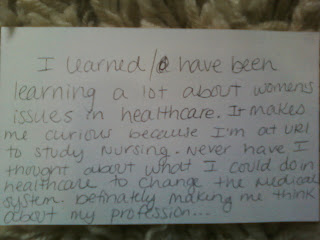 I learned / have been
learning a lot about womens
issues in healthcare. It makes
me curious because I'm at URI
to study nursing. Never have I
thought about what I could do in
healthcare to change the medical
system. Definately making me think
about my profession...